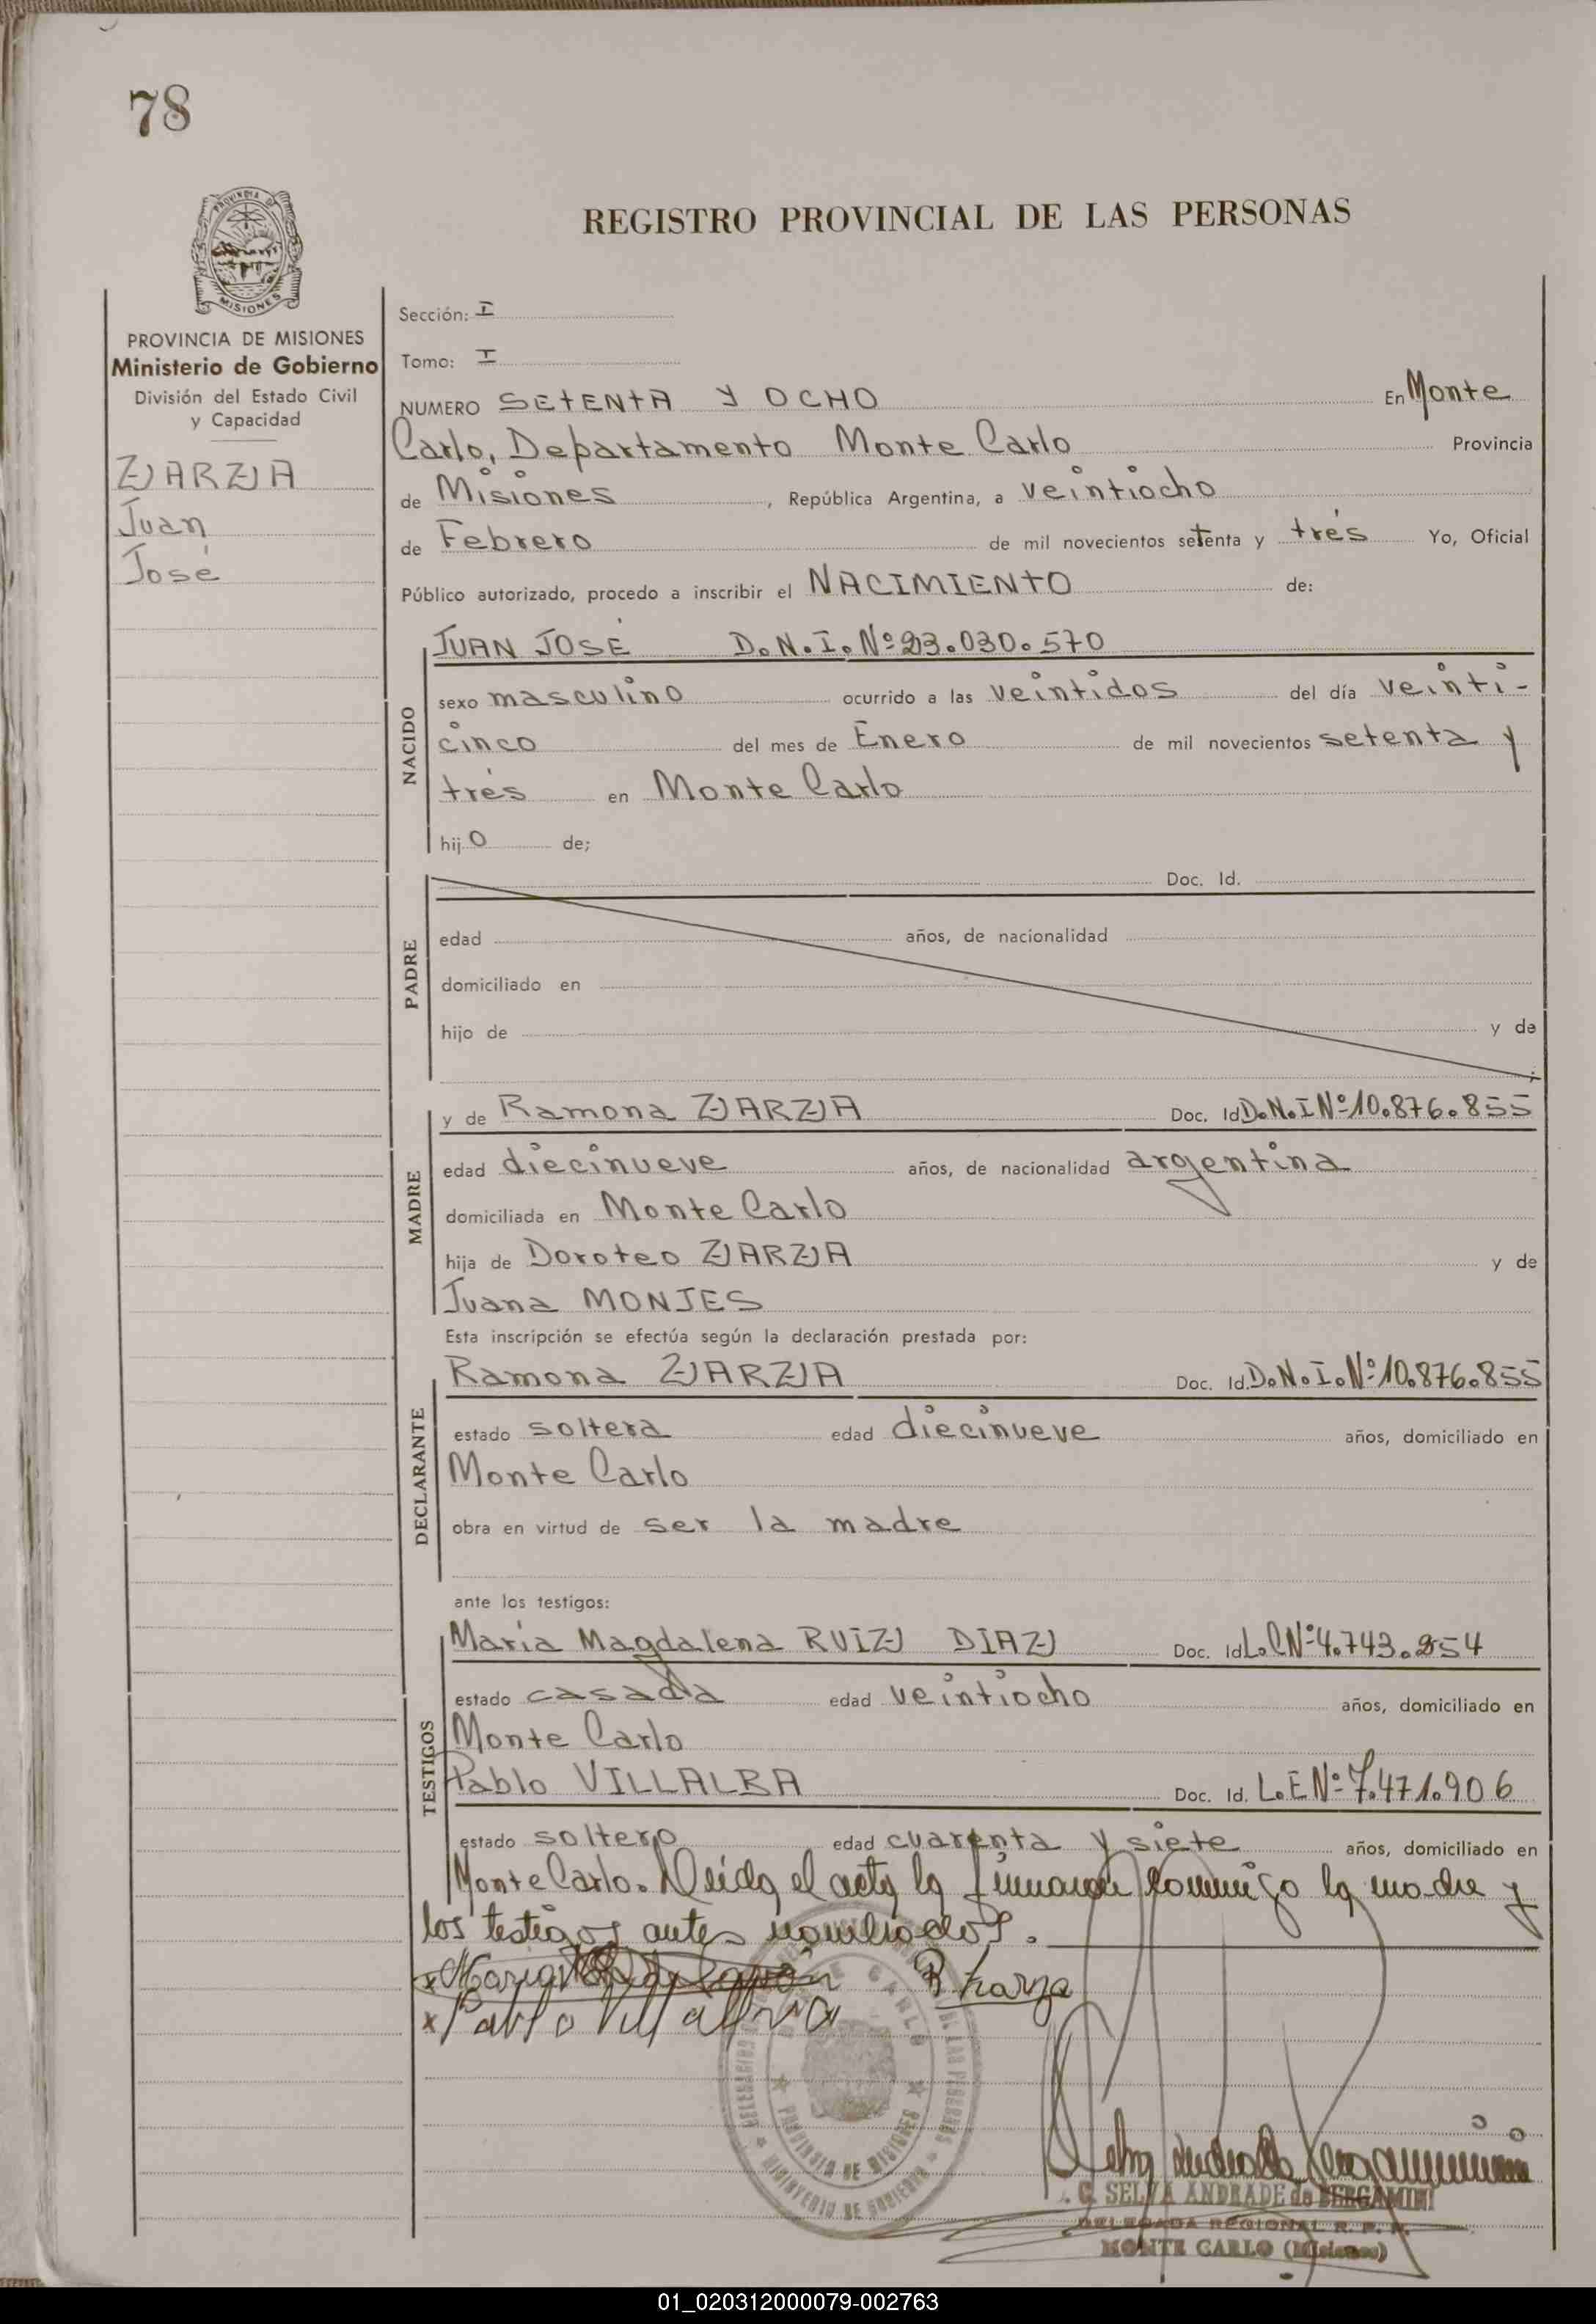 78
PROVINCIA DE
MISIONES
REGISTRO PROVINCIAL DE LAS PERSONAS
PROVINCIA DE MISIONES
Ministerio de Gobierno
División del Estado Civil
y Capacidad
ZARZA
Juan
José
Sección: I
Tomo: I
NUMERO SETENTA Y OCHO En Monte
Carlo, Departamento Monte Carlo Provincia
de Misiones, República Argentina, a veintiocho
de Febrero de mil novecientos setenta y trés Yo, Oficial
Público autorizado, procedo a inscribir el NACIMIENTO de:
NACIDO
JUAN JOSÉ D.N.I.Nº23.030.570
sexo masculino ocurrido a las veintidos del día veinti-
cinco del mes de Enero de mil novecientos setenta y
trés en Monte Carlo
hijo de;
PADRE
Doc. Id.
edad años, de nacionalidad
domiciliado en
hijo de y de
;
MADRE
y de Ramona ZARZA Doc. Id D.N.I Nº10.876.855
edad diecinueve años, de nacionalidad argentina
domiciliada en Monte Carlo
hija de Doroteo ZARZA y de
Juana MONJES
Esta inscripción se efectúa según la declaración prestada por:
DECLARANTE
Ramona ZARZA Doc. Id. D.N.I.Nº10.876.855
estado soltera edad diecinueve años, domiciliado en
Monte Carlo
obra en virtud de ser la madre
ante los testigos:
TESTIGOS
María Magdalena RUIZ DIAZ Doc. Id L.C Nº4.743.254
estado casada edad veintiocho años, domiciliado en
Monte Carlo
Pablo VILLALBA Doc. Id. L.E Nº7.471.906
estado soltero edad cuarenta y siete años, domiciliado en
Monte Carlo. Leída el acta la firmaron conmigo la madre y
los testigos antes nombrados.
x Maria R. Zarza
x Pablo Villalba
MONTE CARLO
PROVINCIA DE MISIONES
MINISTERIO DE GOBIERNO
C. SELVA ANDRADE de BERGAMINI
DELEGADA REGIONAL R. P. P.
MONTE CARLO (Misiones)
01_020312000079-002763